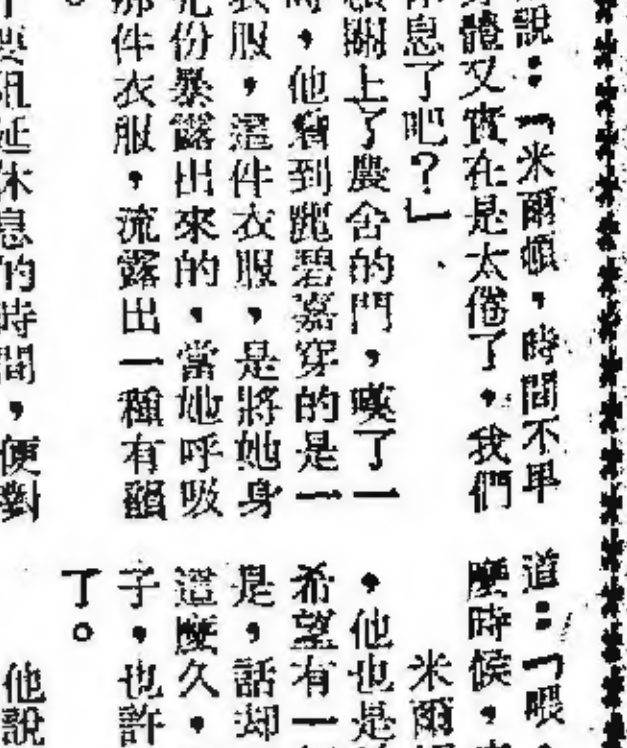 說：「米爾頓，時間不早
體又實在是太倦了，我們
息了吧？」
關上了農舍的門，嘆了一
，他看到麗碧嘉穿的是一
衣服，這件衣服，是將她身
份暴露出來的，當她呼吸
那件衣服，流露出一種有韻
。
要阻延休息的時間，便對
道：「喂
麼時候，
米爾
，他也是
希望有一
是，話却
這麼久，
子，也許
了。
他說